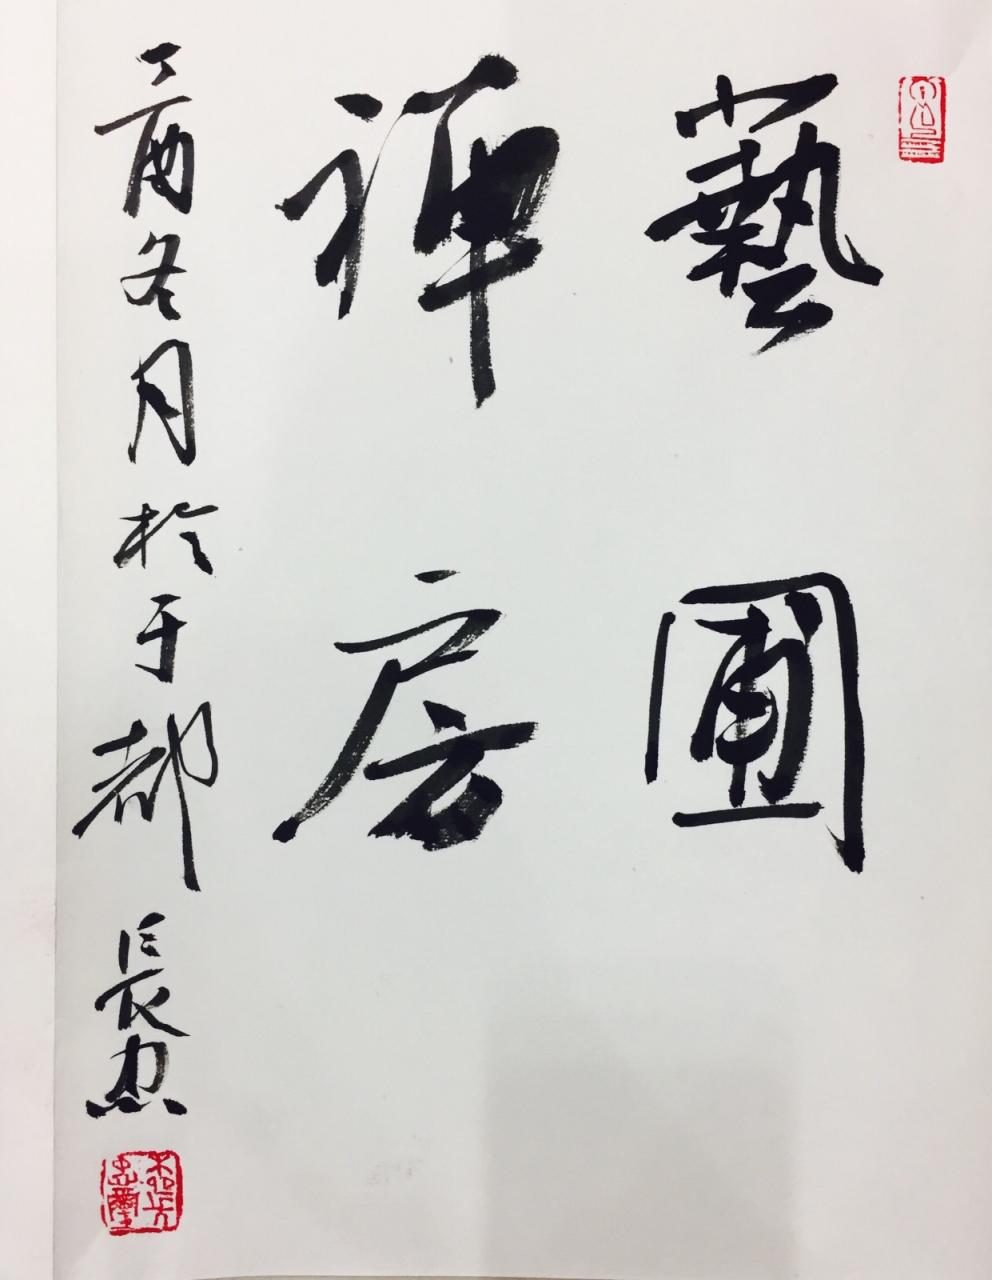 藝圃
禪房
丁酉冬月於于都長